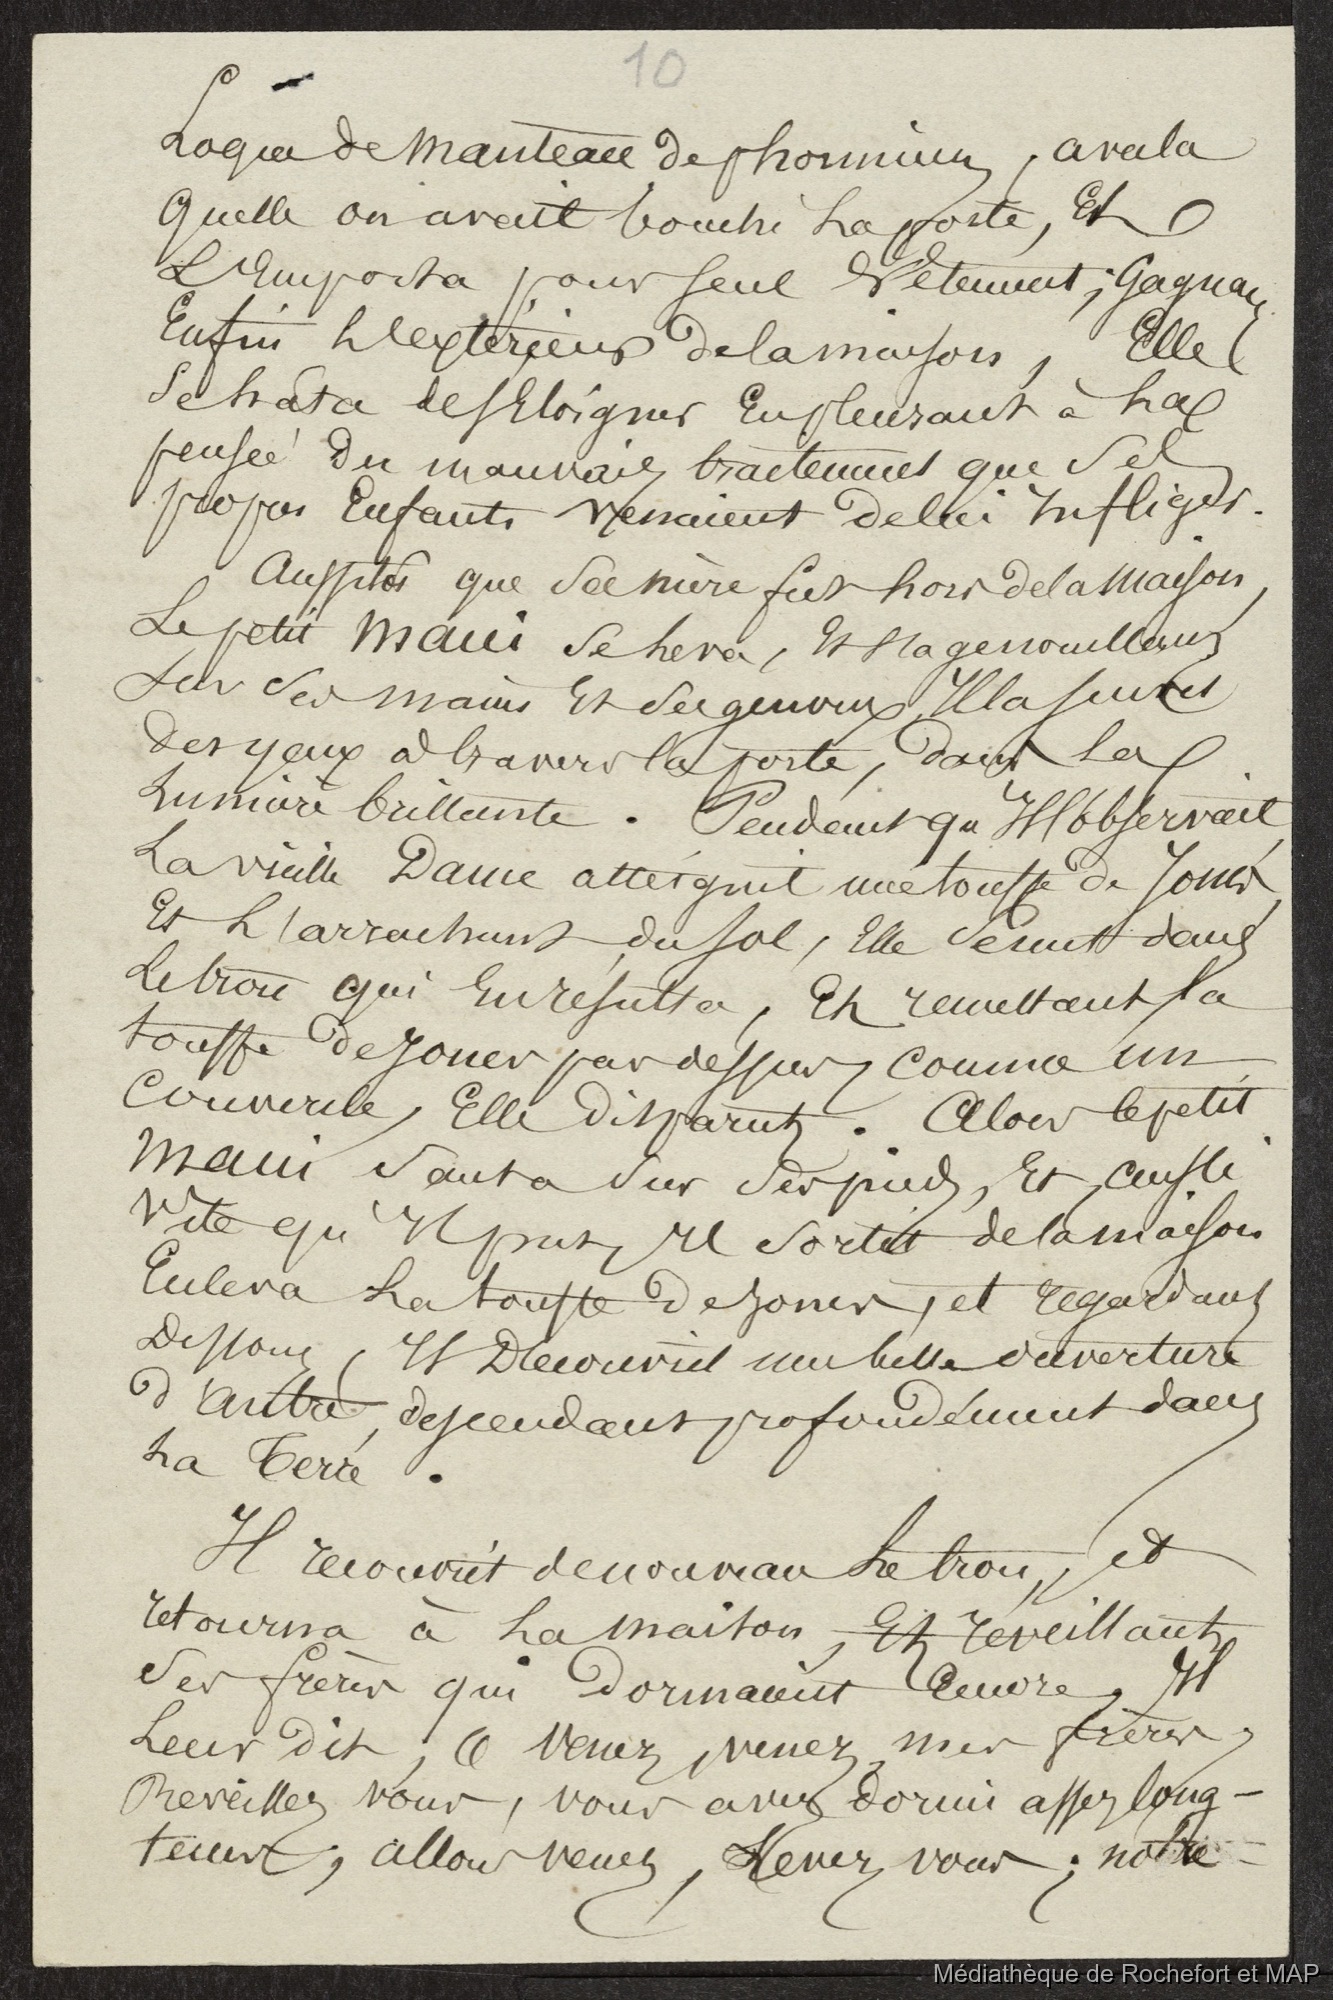 10
Loque de Manteau de phormium, avec la
Quelle on avait bouché La porte, Et
L'Emporta pour seul Vêtement; Gagnant
Enfin L'extérieur de la maison, Elle
Se hâta de s'Eloigner En pleurant à La
pensée Du mauvais traitement que Ses
propres Enfants venaient de lui Infliger.
Aussitôt que Sa mère fut hors de la Maison,
Le petit Maui Se leva, Et s'agenouillant
Sur Ses mains Et Ses genoux, Il la suivit
des yeux à travers la porte, dans La
Lumière brillante. Pendant qu'Il l'observait
La vieille Dame atteignit une touffe de Joncs,
Et L'arrachant du sol, Elle Se mit dans
Le trou qui En résulta, Et remettant la
touffe de Joncs par dessus, comme un
Couvercle, Elle disparut. Alors le petit
Maui Sauta Sur Ses pieds, Et aussi
Vite qu'Il put, Il Sortit de la maison
Enleva La touffe de Joncs, et regardant
Dessous, Il Découvrit une belle ouverture
d'antre, descendant profondément dans
La Terre.
Il recouvrit de nouveau Le trou, et
retourna à La Maison, Et réveillant
Ses frères qui Dormaient Encore, Il
Leur dit, O Venez, venez, mes frères,
Reveillez vous, vous avez dormi assez long-
temps, allons venez, Levez vous; notre
Médiathèque de Rochefort et MAP